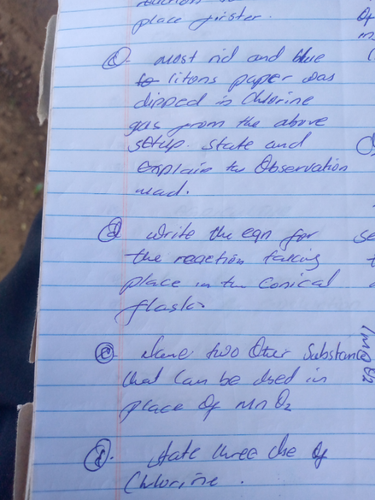 reaction
place firster.
(c) most rid and blue
litons paper was
dipped in Chlorine
gas from the above
setup. state and
Explain the Observation
mad.
(d) write the eqn for
the reaction taking
place in the Conical
flask.
(e) Name two Other Substance
that Can be Used in
place Of MnO2
(f). State three Use of
Chlorine.